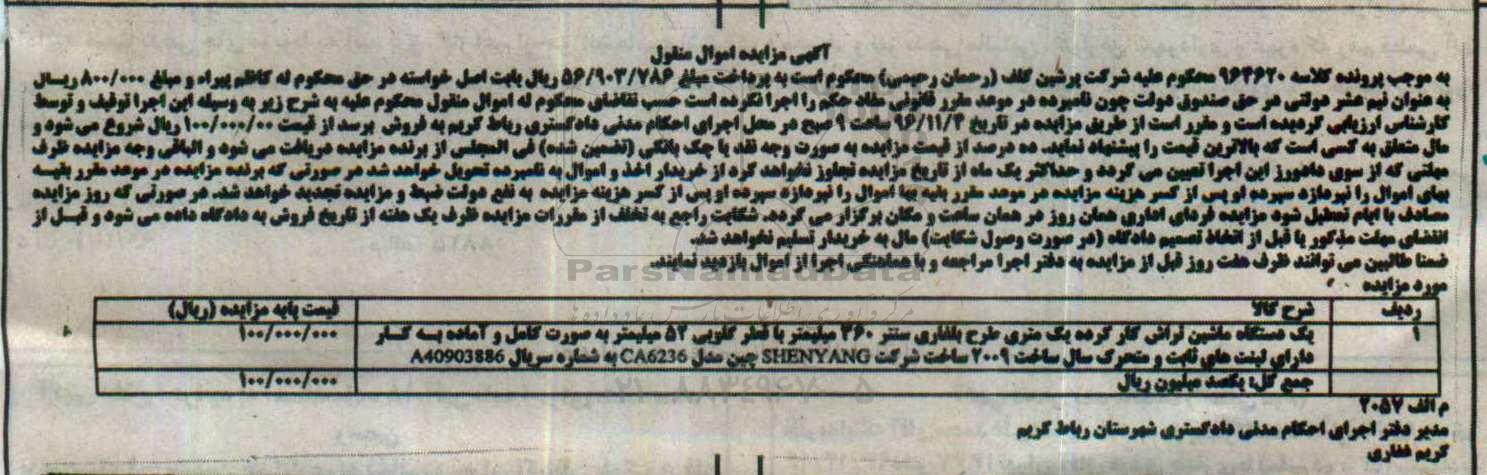 آگهی مزایده اموال منقول
به موجب پرونده کلاسه ۹۶۴۶۲۰ محکوم علیه شرکت پرشین کلاف (رحمان رحیمی) محکوم است به پرداخت مبلغ ۵۶/۹۰۳/۷۸۶ ریال بابت اصل خواسته در حق محکوم له کاظم پیراد و مبلغ ۸۰۰/۰۰۰ ریسال
به عنوان نیم عشر دولتی در حق صندوق دولت چون نامبرده در موعد مقرر قانونی مفاد حکم را اجرا نکرده است حسب تقاضای محکوم له اموال منقول محکوم علیه به شرح زیر به وسیله این اجرا توقیف و توسط
کارشناس ارزیابی گردیده است و مقرر است از طریق مزایده در تاریخ ۹۶/۱۱/۴ ساعت ۹ صبح در محل اجرای احکام مدنی دادگستری رباط کریم به فروش برسد از قیمت ۱۰۰/۰۰۰/۰۰ ریال شروع می شود و
مال متعلق به کسی است که بالاترین قیمت را پیشنهاد نماید. ده درصد از قیمت مزایده به صورت وجه نقد یا چک بانکی (تضمین شده) فی المجلس از برنده مزایده دریافت می شود و الباقی وجه مزایده ظرف
مهلتی که از سوی دادورز این اجرا تعیین می گردد و حداکثر یک ماه از تاریخ مزایده تجاوز نخواهد کرد از خریدار اخذ و اموال به نامبرده تحویل خواهد شد در صورتی که برنده مزایده در موعد مقرر بقیسه
بهای اموال را نپردازد سپرده او پس از کسر هزینه مزایده در موعد مقرر بقیه بها اموال را نپردازد سپرده او پس از کسر هزینه مزایده به نفع دولت ضبط و مزایده تجدید خواهد شد. در صورتی که روز مزایده
مصادف با ایام تعطیل شود مزایده فردای اداری همان روز در همان ساعت و مکان برگزار می گردد. شکایت راجع به تخلف از مقررات مزایده ظرف یک هفته از تاریخ فروش به دادگاه داده می شود و قبسل از
انقضای مهلت مذکور یا قبل از اتخاذ تصمیم دادگاه (در صورت وصول شکایت) مال به خریدار تسلیم نخواهد شد.
ضمنا طالبین می توانند ظرف هفت روز قبل از مزایده به دفتر اجرا مراجعه و با هماهنگی اجرا از اموال بازدید نمایند.
ParsNamadData
مورد مزایده
مرکز فرآوری اطلاعات پارس نماد داده ها
ردیف شرح کالا قیمت پایه مزایده (ریال)
۱ یک دستگاه ماشین تراش کار کرده یک متری طرح بلغاری سنتر ۳۶۰ میلیمتر با قطر گلویی ۵۲ میلیمتر به صورت کامل و آماده بسه کسار ۱۰۰/۰۰۰/۰۰۰
دارای لینت های ثابت و متحرک سال ساخت ۲۰۰۹ ساخت شرکت SHENYANG چین مدل CA6236 به شماره سریال A40903886
جمع کل: یکصد میلیون ریال ۱۰۰/۰۰۰/۰۰۰
م الف ۲۰۵۷
مدیر دفتر اجرای احکام مدنی دادگستری شهرستان رباط کریم
کریم غفاری